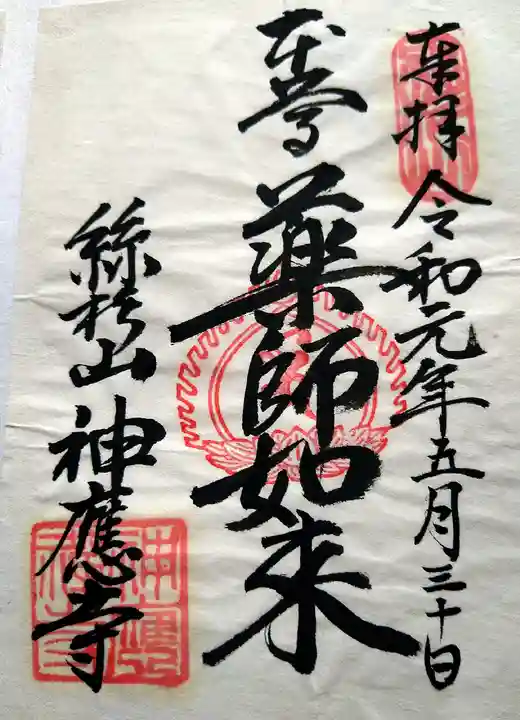 奉拝 令和元年五月三十日
本尊 薬師如来
絲杉山 神應寺